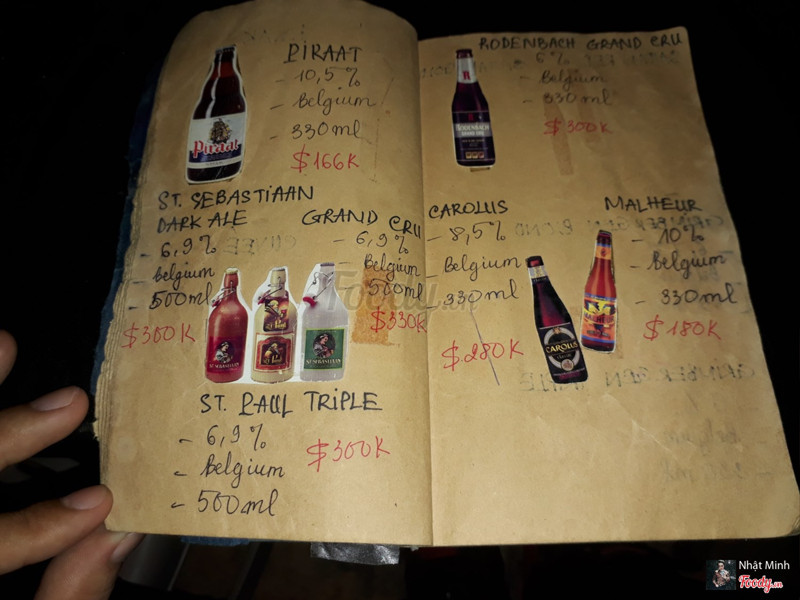 PIRAAT
- 10,5%
- Belgium
- 330ml
$166K
Piraat
ST. SEBASTIAAN
DARK ALE
- 6,9%
Belgium
- 500ml
$300K
GRAND CRU
- 6,9%
- Belgium
500ml
$330K
ST. PAUL TRIPLE
- 6,9%
- Belgium
- 500ml
$300K
RODENBACH GRAND CRU
- 6%
- Belgium
- 330ml
$300K
R
RODENBACH
CAROLUS
- 8,5%
- Belgium
- 330ml
$280K
CAROLUS
MALHEUR
- 10%
- Belgium
- 330ml
$180K
Foody.vn
Nhật Minh
Foody.vn